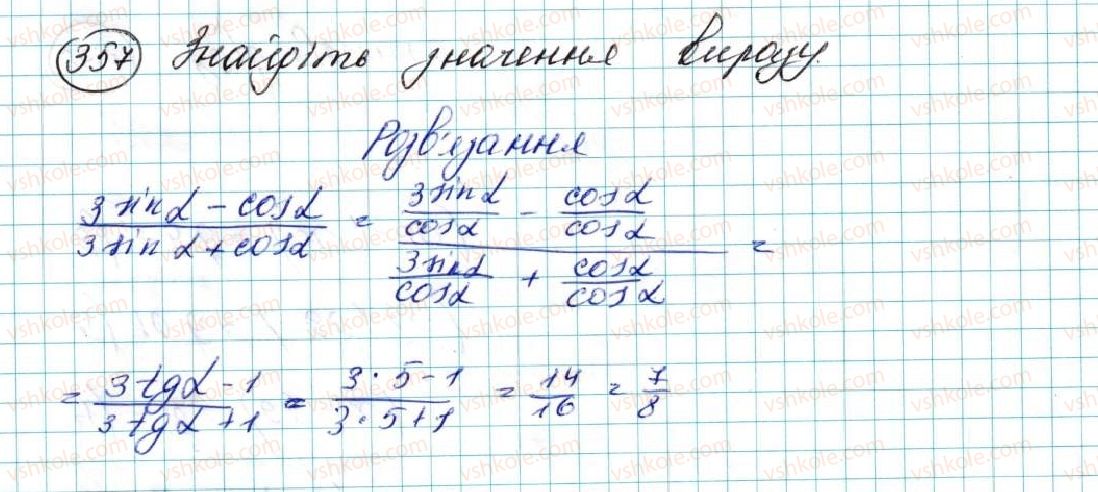 357 Знайдіть значення виразу.
Розв'язання
(3 sin α − cos α)/(3 sin α + cos α) = (3 sin α/cos α − cos α/cos α)/(3 sin α/cos α + cos α/cos α) =
= (3 tg α − 1)/(3 tg α + 1) = (3 · 5 − 1)/(3 · 5 + 1) = 14/16 = 7/8